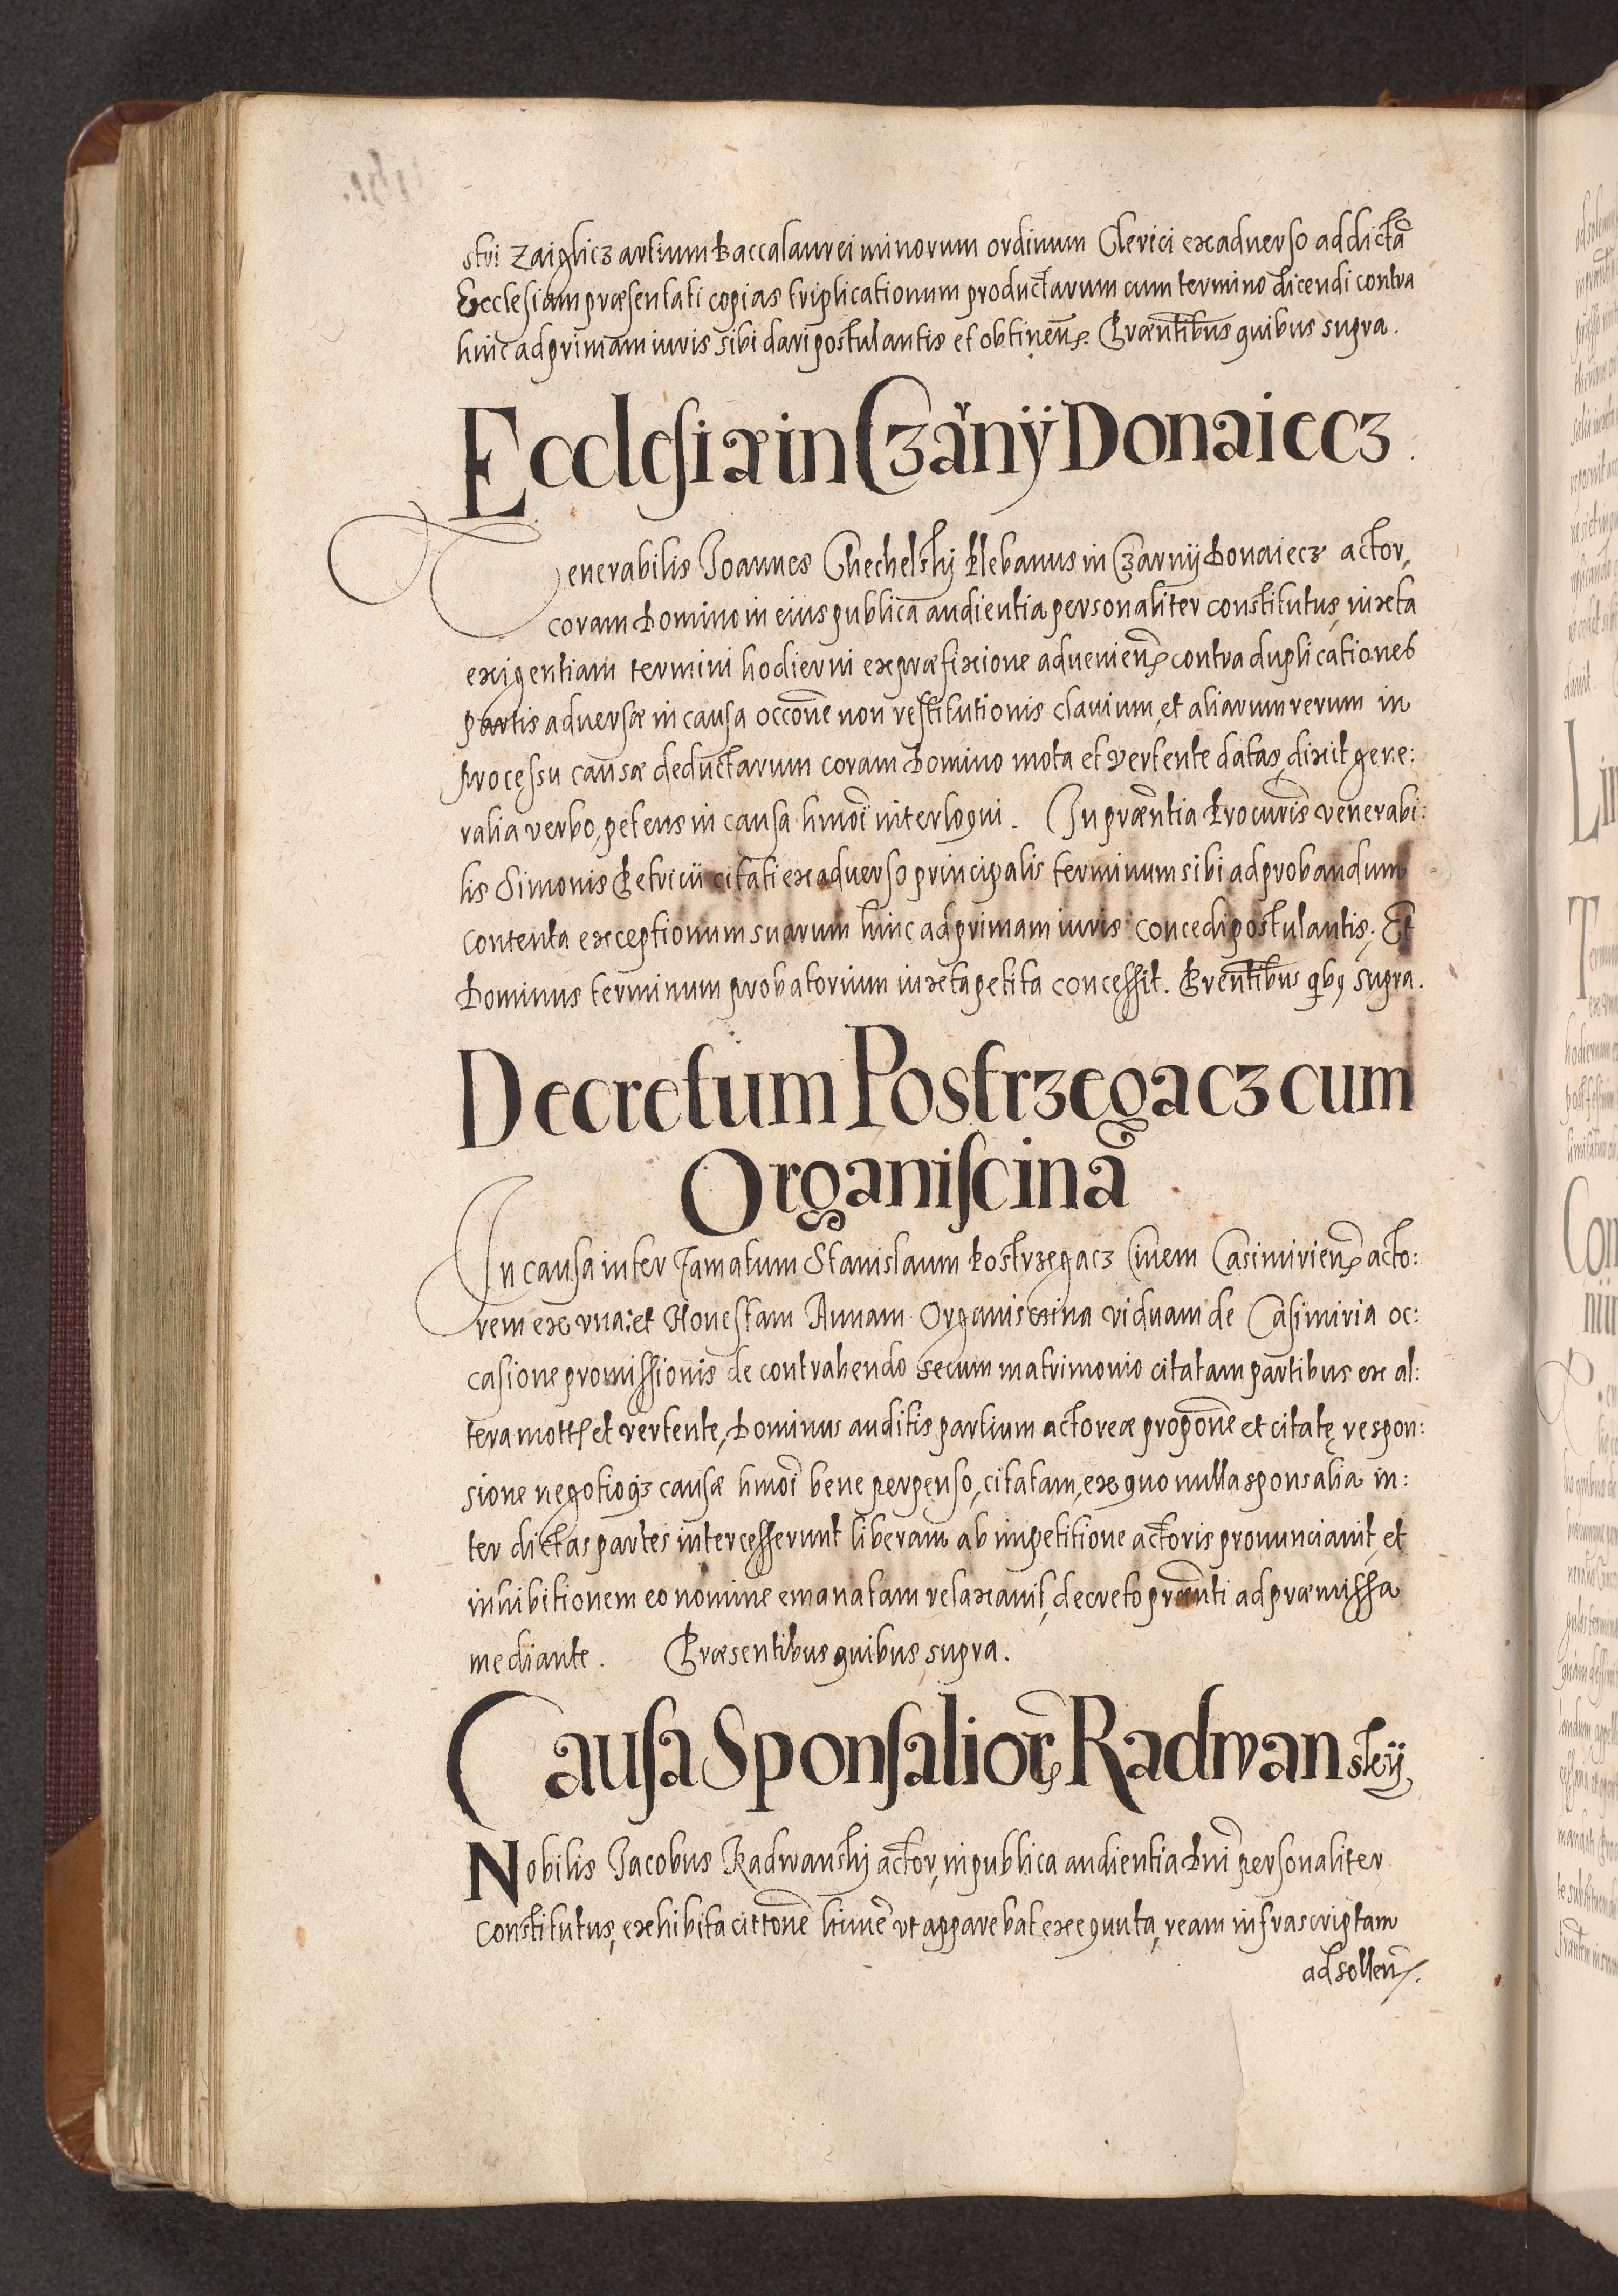 stri Zaiglicz artium Baccalaurei minorum ordinum Clerici ex aduerso ad dictã
Ecclesiam præsentati copias triplicationum productarum cum termino dicendi contra
hinc ad primam iuris sibi dari postulantis et obtineñ. Præntibus quibus supra.
Ecclesiæ in Czarnÿ Donaiecz.
Venerabilis Joannes Chechelskij Plebanus in Czarnij Donaiecz actor,
coram Domino in eius publica audientia personaliter constitutus, iuxta
exigentiam termini hodierni ex præfixione adueniene contra duplicationes
partis aduersæ in causa occone non restitutionis clauium, et aliarum rerum in
processu causæ deductarum coram Domino mota et vertente datas, dixit gene:
ralia verbo, petens in causa hmoi interloqui. In præntia Procuris venerabi:
lis Simonis Petricii citati ex aduerso principalis terminum sibi ad probandum
contenta exceptionum suarum hinc ad primam iuris concedi postulantis. Et
Dominus terminum probatorium iuxta petita concessit. Prentibus qbq supra.
Decretum Postrzegacz cum
Organiscina
In causa inter famatum Stanislaum Postrzegacz Ciuem Casimirien acto:
rem ex vna: et Honestam Annam Organiscina viduam de Casimiria oc:
casione promissionis de contrahendo secum matrimonio citatam partibus ex al:
tera mott et vertente, Dominus auditis partium actoreæ propone et citatę respon:
sione negotioqz causæ hmoi bene perpenso, citatam, ex quo nulla sponsalia in:
ter dictas partes intercesserunt liberam ab impetitione actoris pronunciauit, et
inhibitionem eo nomine emanatam relaxauit, decreto prænti ad præmissa
mediante. Præsentibus quibus supra.
Causa Sponsalior Radwanskÿ
Nobilis Jacobus Radwanskij actor, in publica audientia Dni personaliter
constitutus, exhibita cittone hime vt apparebat exequuta, ream infrascriptam
ad sollen.